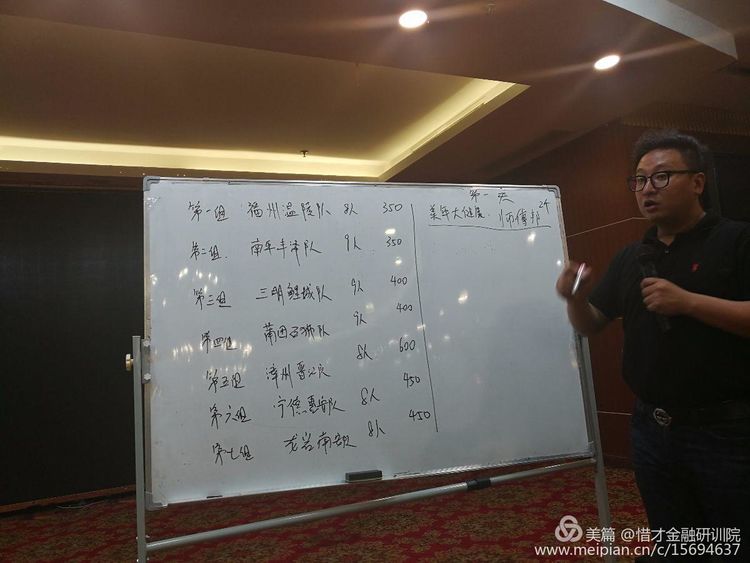 第一组 福州温陵队 8人 350
第二组 南平丰泽队 9人 350
第三组 三明鲤城队 9人 400
第四组 莆田石狮队 9人 400
第五组 漳州晋江队 8人 600
第六组 宁德惠安队 8人 450
第七组 龙岩南安队 8人 450
第一天
美年大健康 师傅邦 24
美篇 @惜才金融研训院
www.meipian.cn/c/15694637